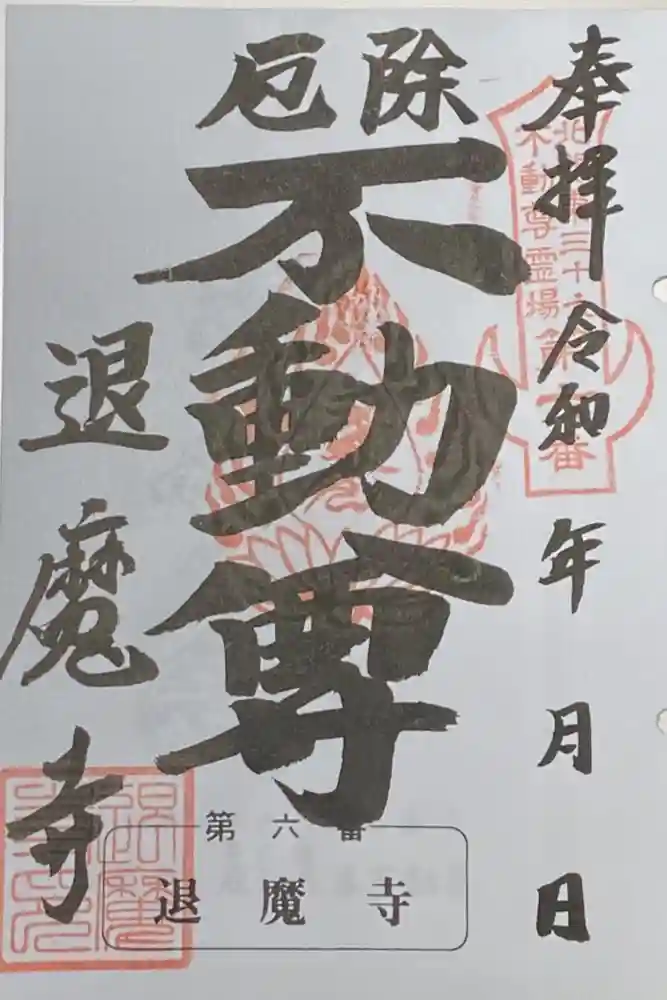 奉拝
令和 年 月 日
北関東三十六
不動尊霊場第六番
厄除
不動尊
退魔寺
第六番
退魔寺